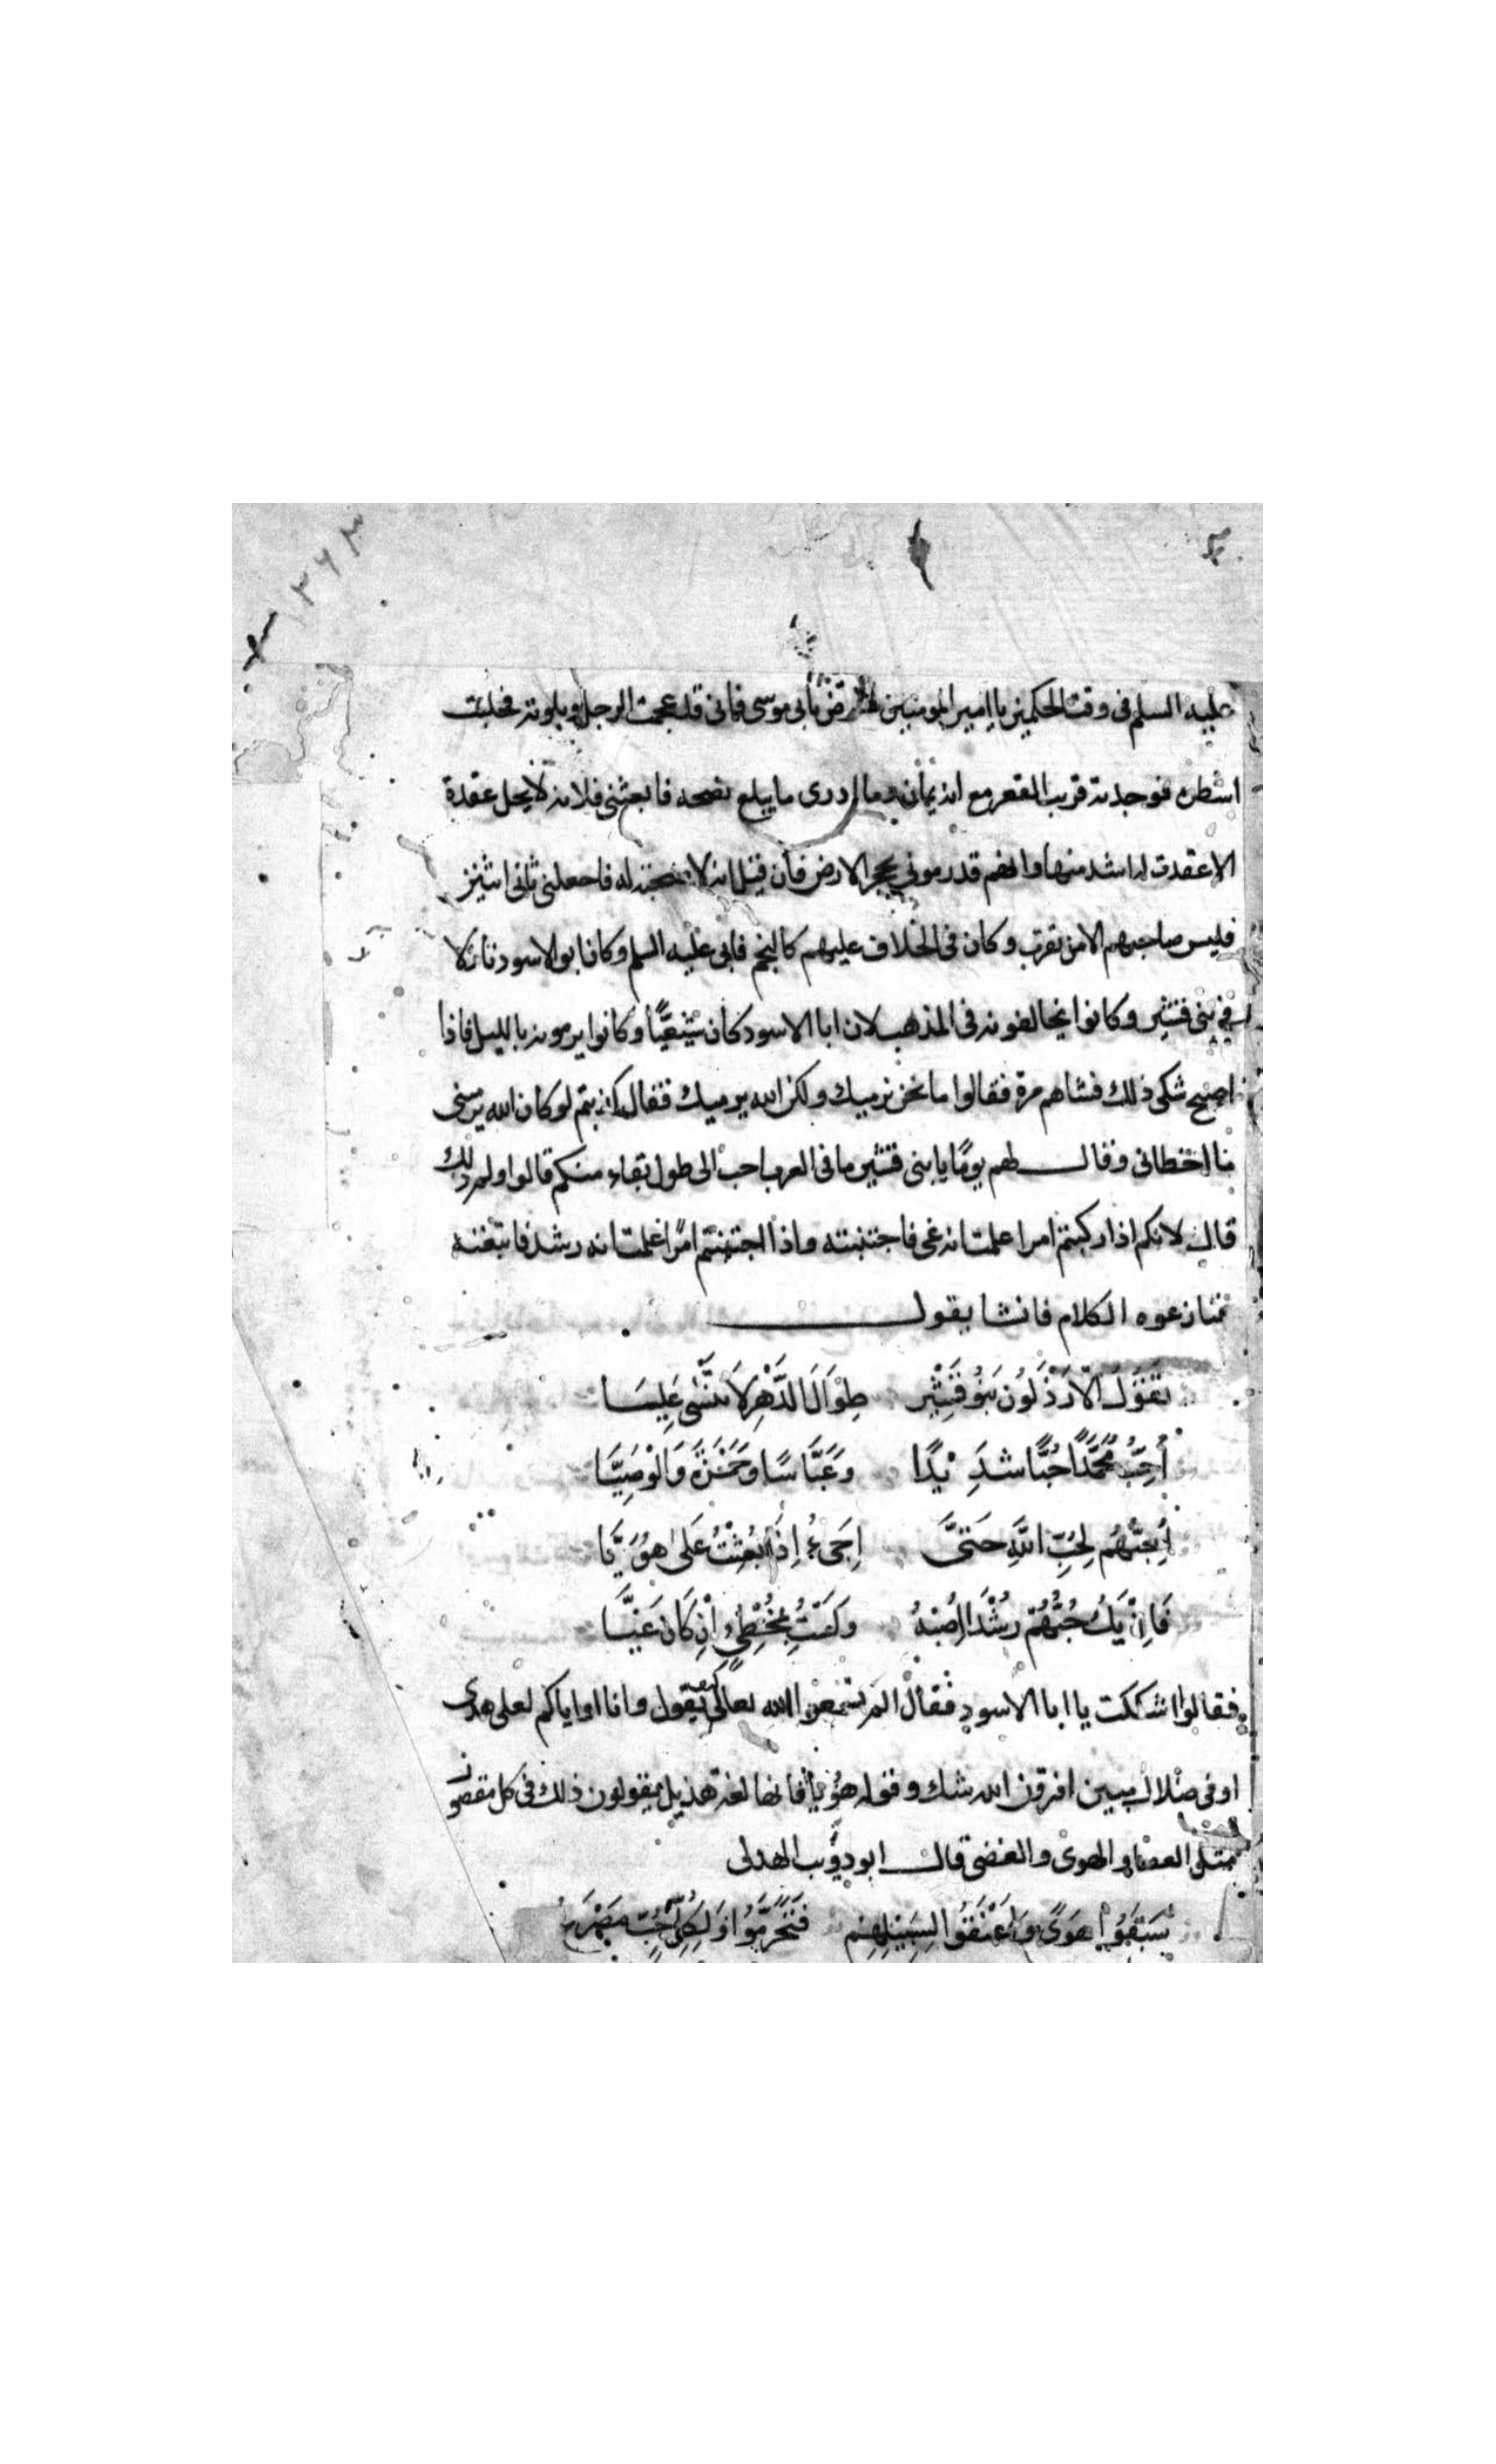 ٢٤٣
عليه السلم فى وقت الحكمين يا امير المومنين لا ترض بابى موسى فانى قد عجمت الرجل وبلوته فحلبت
اشطره فوجدته قريب القعر مع انه يمان وما ادرى ما يبلغ نصحه فابعثنى فلانه لا يحل عقدة
الا عقدت له اشد منها وانهم قد رمونى بحجر الارض فان قيل انه لا صحبة له فاجعلنى ثانى اثنين
فليس صاحبهم الا من تقرب وكان فى الخلاف عليهم كالنجم فابى عليه السلم وكان ابو الاسود نازلا
فى بنى قشير وكانوا يخالفونه فى المذهب لان ابا الاسود كان شيعيًّا وكانوا يرمونه بالليل فاذا
اصبح شكى ذلك فشاهم مرة فقالوا ما نحن نرميك ولكن الله يرميك فقال كذبتم لو كان الله يرمينى
ما اخطانى وقال لهم يومًا يا بنى قشير ما فى العرب احب الى طول بقاء منكم قالوا ولم ذلك
قال لانكم اذا ركبتم امرا علمت انه غى فاجتنبته واذا اجتنبتم امرًا علمت انه رشد فاتبعته
فنازعوه الكلام فانشا يقول
تَقُولُ الْارْذَلُونَ بَنُو قُشَيْرٍ طِوَالَ الدَّهْرِ لَا تَنْسَى عَلِيَّا
أُحِبُّ مُحَمَّدًا حُبًّا شَدِيْدًا وَعَبَّاسًا وَحَمْزَةَ وَالْوَصِيَّا
أُحِبُّهُمُ لِحُبِّ اللَّهِ حَتَّى اجِىءُ إِذَا بُعِثْتُ عَلَى هَوَيَّا
فَاِنْ يَكُ حُبُّهُمْ رُشْدًا اصِبْهُ وَلَسْتُ بِمُخْطِىءٍ اِنْ كَانَ غَيَّا
فقالوا اشككت يا ابا الاسود فقال الم تسمعوا الله تعالى يقول وانا او اياكم لعلى هدى
او فى ضلال مبين افترون الله شك وقوله هَوَيَّا فانها لغة هذيل يقولون ذلك فى كل مقصور
مثل العصا والهوى والقفى قال ابو ذؤيب الهذلى
سَبَقُوا هَوَىَّ وَاعْنَقُوا لِسَبِيْلِهِمْ فَتُخُرِّمُوا وَلِكُلِّ جَنْبٍ مَصْرَعُ